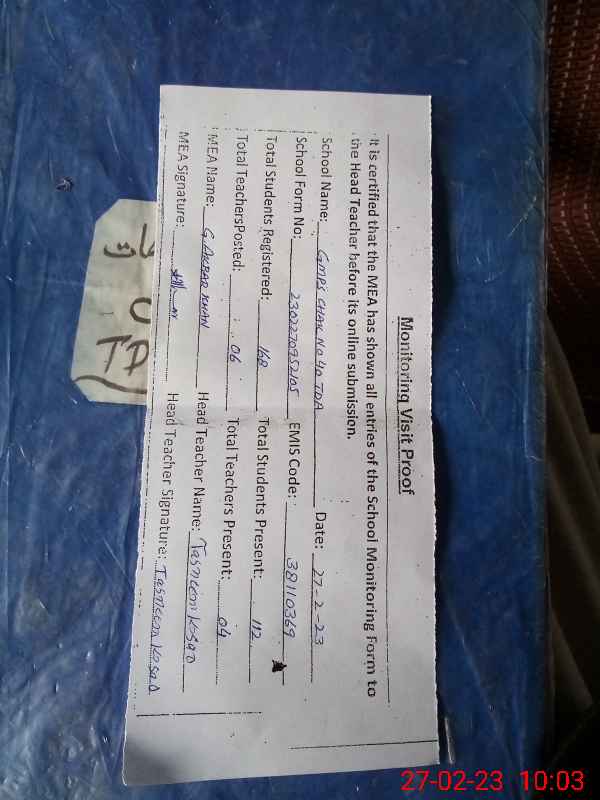 Monitoring Visit Proof
It is certified that the MEA has shown all entries of the School Monitoring Form to
the Head Teacher before its online submission.
School Name: GMPS CHAK NO 40 TDA Date: 27-2-23
School Form No: 2302270952105 EMIS Code: 38110369
Total Students Registered: 168 Total Students Present: 112
Total TeachersPosted: 06 Total Teachers Present: 04
MEA Name: G. AKBAR KHAN Head Teacher Name: Tasneem Kosar
MEA Signature: Head Teacher Signature: Tasneem Kosar
27-02-23 10:03